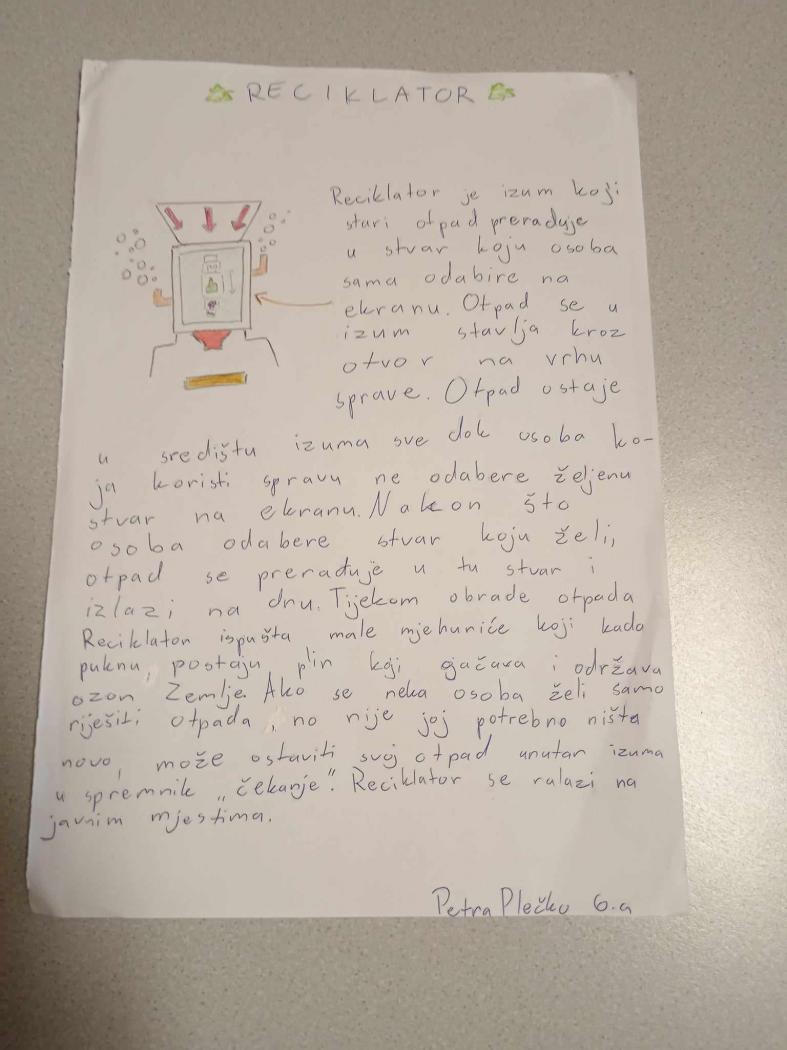 RECIKLATOR
Reciklator je izum koji
stari otpad prerađuje
u stvar koju osoba
sama odabire na
ekranu. Otpad se u
izum stavlja kroz
otvor na vrhu
sprave. Otpad ostaje
u središtu izuma sve dok osoba ko-
ja koristi spravu ne odabere željenu
stvar na ekranu. Nakon što
osoba odabere stvar koju želi,
otpad se prerađuje u tu stvar i
izlazi na dnu. Tijekom obrade otpada
Reciklator ispušta male mjehuriće koji kada
puknu, postaju plin koji ojačava i održava
ozon Zemlje. Ako se neka osoba želi samo
riješiti otpada, no nije joj potrebno ništa
novo, može ostaviti svoj otpad unutar izuma
u spremnik „čekanje". Reciklator se nalazi na
javnim mjestima.
Petra Plečko 6.a